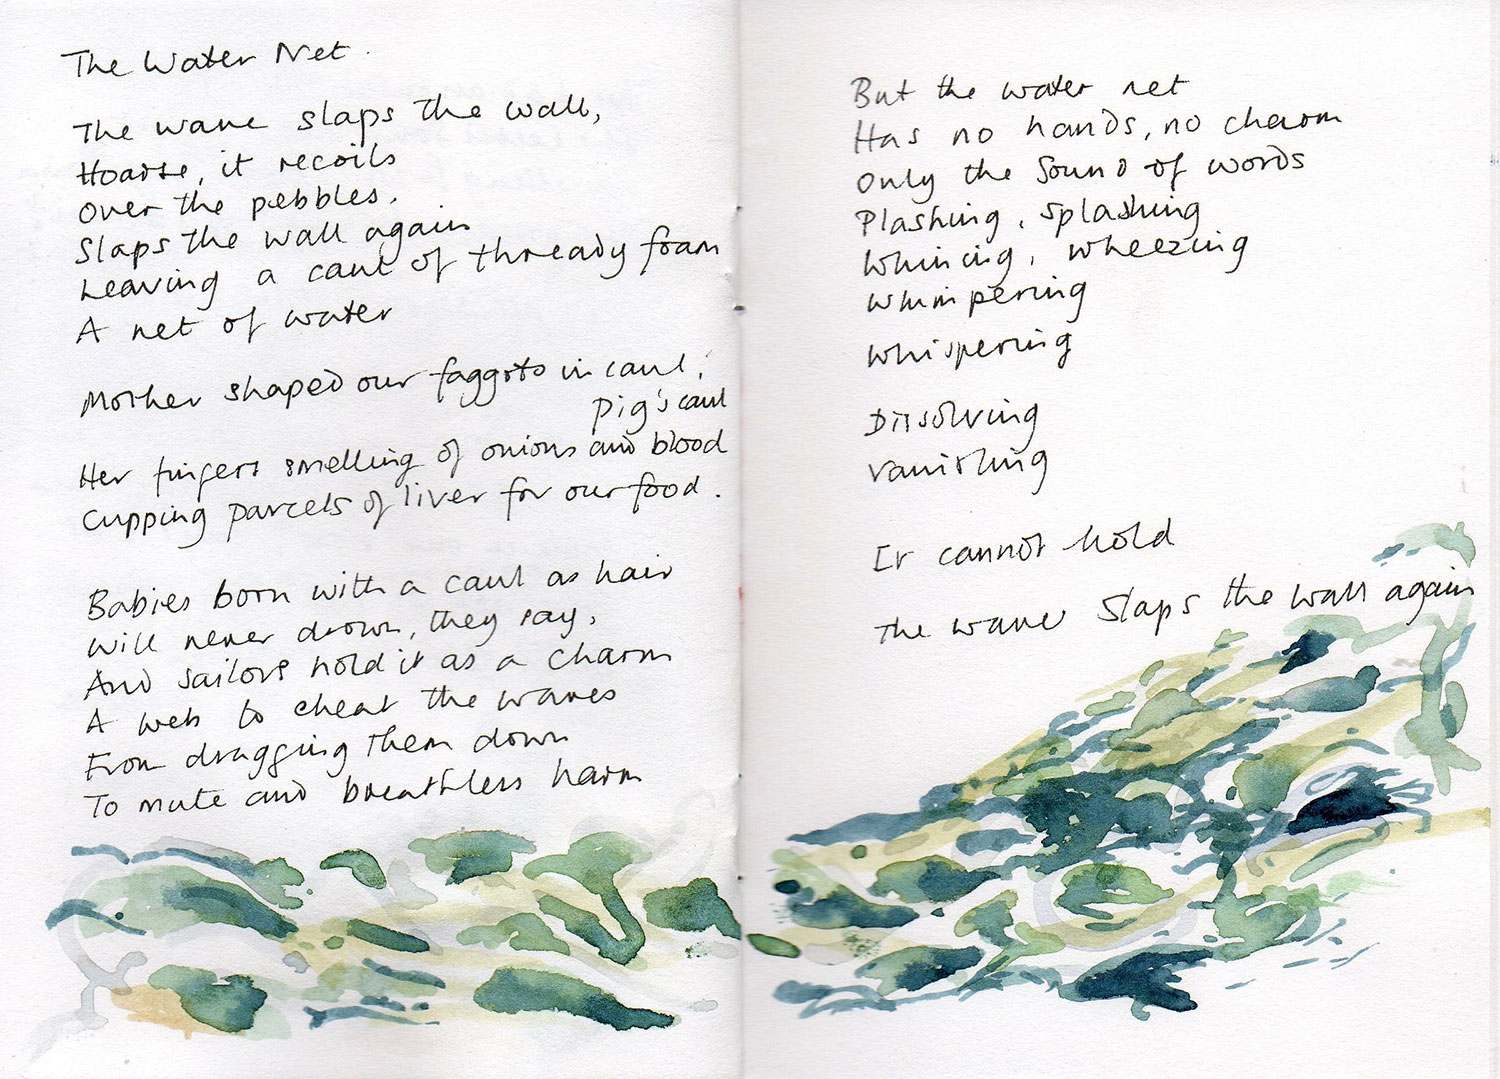 The Water Net.
The wave slaps the wall,
Hoarse, it recoils
Over the pebbles,
Slaps the wall again
Leaving a caul of thready foam
A net of water
Mother shaped our faggots in caul,
pig's caul
Her fingers smelling of onions and blood
Cupping parcels of liver for our food.
Babies born with a caul as hair
Will never drown, they say,
And sailors hold it as a charm
A web to cheat the waves
From dragging them down
To mute and breathless harm
But the water net
Has no hands, no charm
Only the sound of words
Plashing, splashing
Whining, wheezing
Whimpering
Whispering
Dissolving
Vanishing
It cannot hold
The wave slaps the wall again